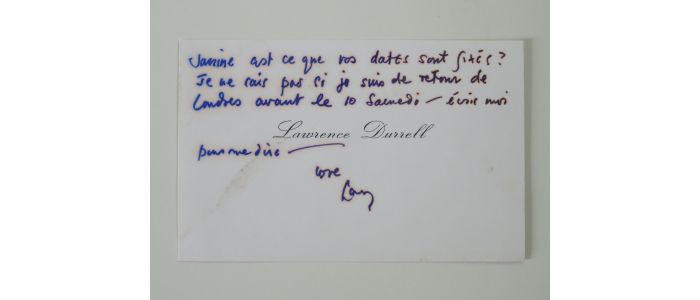 Janine est ce que vos dates sont fixés?
Je ne sais pas si je suis de retour de
Londres avant le 10 Samedi — écris moi
Lawrence Durrell
pour me dire —
love
Larry